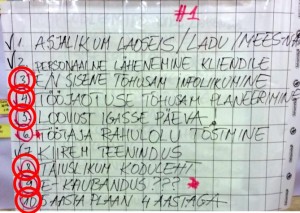 #1
√ 1. ASJALIKUM LAOSEIS/LADU/MEESTNA
√ 2. PERSONAALNE LÄHENEMINE KLIENDILE
3. EV SISENE TÕHUSAM INFOLIIKUMINE
4. TÖÖJAOTUSE TÕHUSAM PLANEERIMINE
5. LOOVUST IGASSE PÄEVA
6. TÖÖTAJA RAHULOLU TÕSTMINE
√ 7. KIIREM TEENINDUS
8. TÄIUSLIKUM KODULEHT
9. E-KAUBANDUS ???
10. 5 AASTA PLAAN 4 AASTAGA